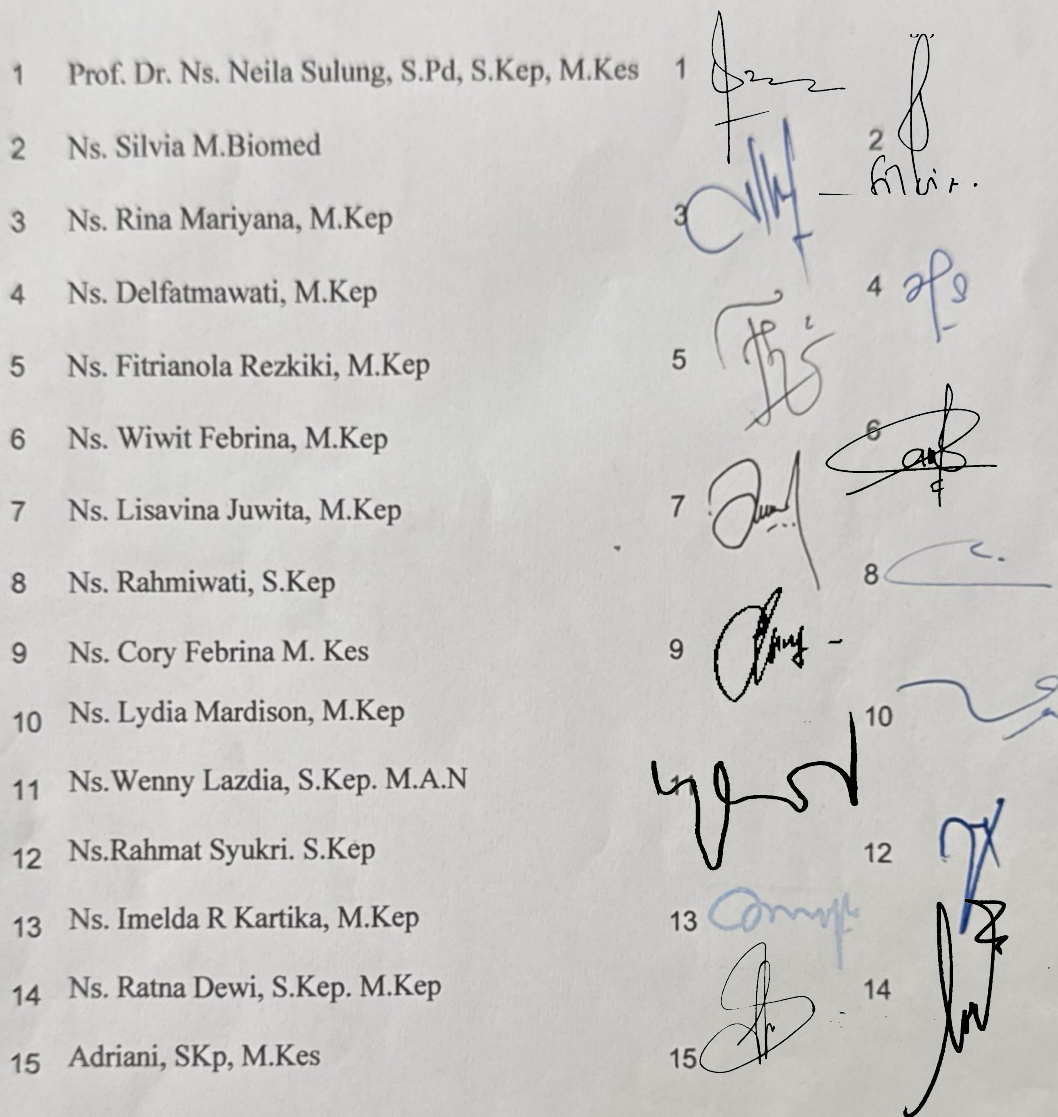 1 Prof. Dr. Ns. Neila Sulung, S.Pd, S.Kep, M.Kes 1
2 Ns. Silvia M.Biomed 2
3 Ns. Rina Mariyana, M.Kep 3
4 Ns. Delfatmawati, M.Kep 4
5 Ns. Fitrianola Rezkiki, M.Kep 5
6 Ns. Wiwit Febrina, M.Kep 6
7 Ns. Lisavina Juwita, M.Kep 7
8 Ns. Rahmiwati, S.Kep 8
9 Ns. Cory Febrina M. Kes 9
10 Ns. Lydia Mardison, M.Kep 10
11 Ns.Wenny Lazdia, S.Kep. M.A.N 11
12 Ns.Rahmat Syukri. S.Kep 12
13 Ns. Imelda R Kartika, M.Kep 13
14 Ns. Ratna Dewi, S.Kep. M.Kep 14
15 Adriani, SKp, M.Kes 15